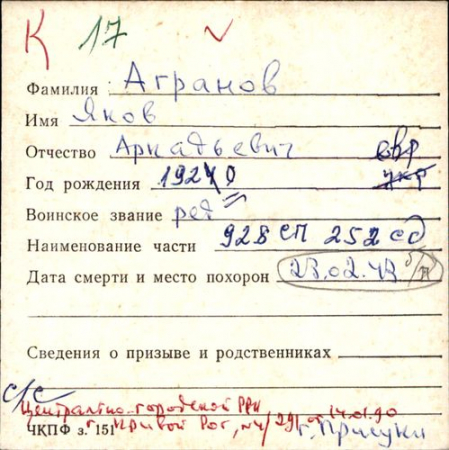 К 17
Фамилия Агранов
Имя Яков
Отчество Аркадьевич евр
Год рождения 1920 укр
Воинское звание ряд
Наименование части 928 сп 252 сд
Дата смерти и место похорон 23.02.43 б/п
Сведения о призыве и родственниках
с/с
Центрально-городской РВК
г. Кривой Рог, №4/291 от 14.01.90
ЧКПФ з. 151 г.